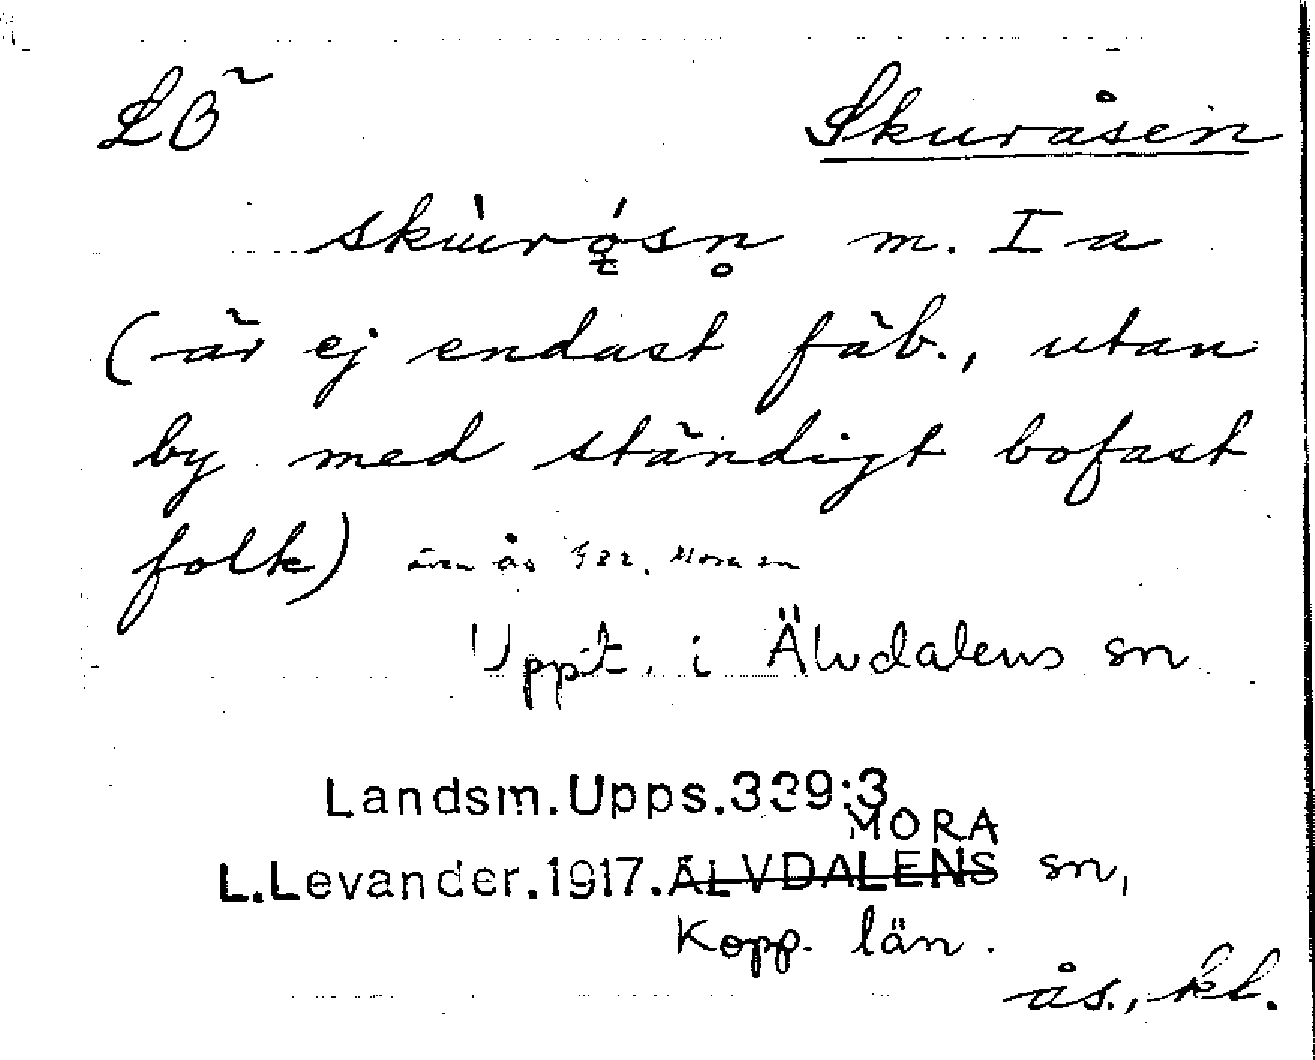 LÖ Skuråsen
skùrǫ́sn̥ m. I a
(är ej endast fäb., utan
by med ständigt bofast
folk) även ås 982. Mora sn
Uppt. i Älvdalens sn
Landsm.Upps.339:3
MORA
L.Levander.1917.ÄLVDALENS sn,
Kopp. län.
ås., kl.